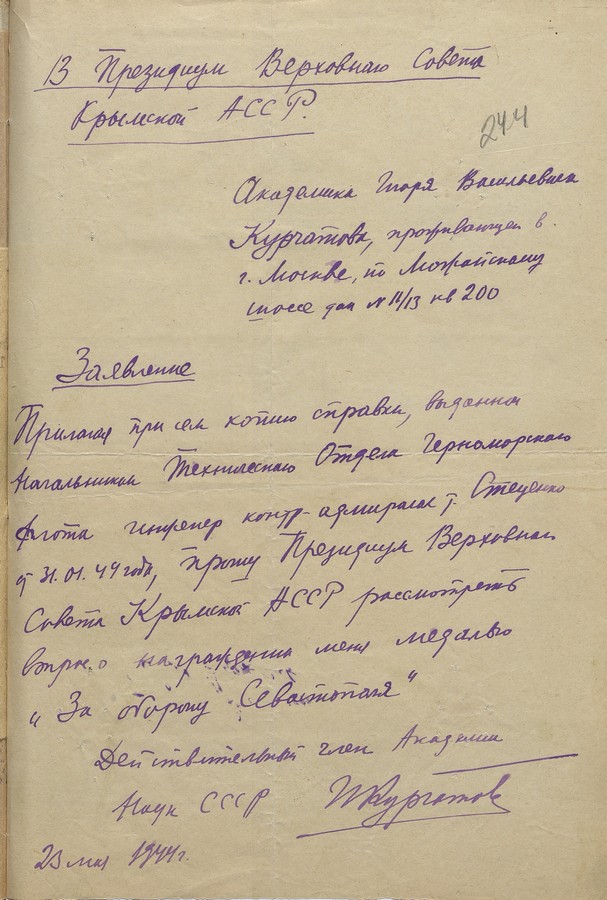 В Президиум Верховного Совета
Крымской АССР.
244
Академика Игоря Васильевича
Курчатова, проживающего в
г. Москве, по Можайскому
шоссе дом № 11/13 кв 200
Заявление
Прилагая при сем копию справки, выданной
Начальником Технического Отдела Черноморского
флота инженер контр-адмиралом т. Стеценко
от 31.01.44 года, прошу Президиум Верховного
Совета Крымской АССР рассмотреть
вопрос о награждении меня медалью
„За оборону Севастополя"
Действительный член Академии
Наук СССР ИКурчатов
23 мая 1944 г.